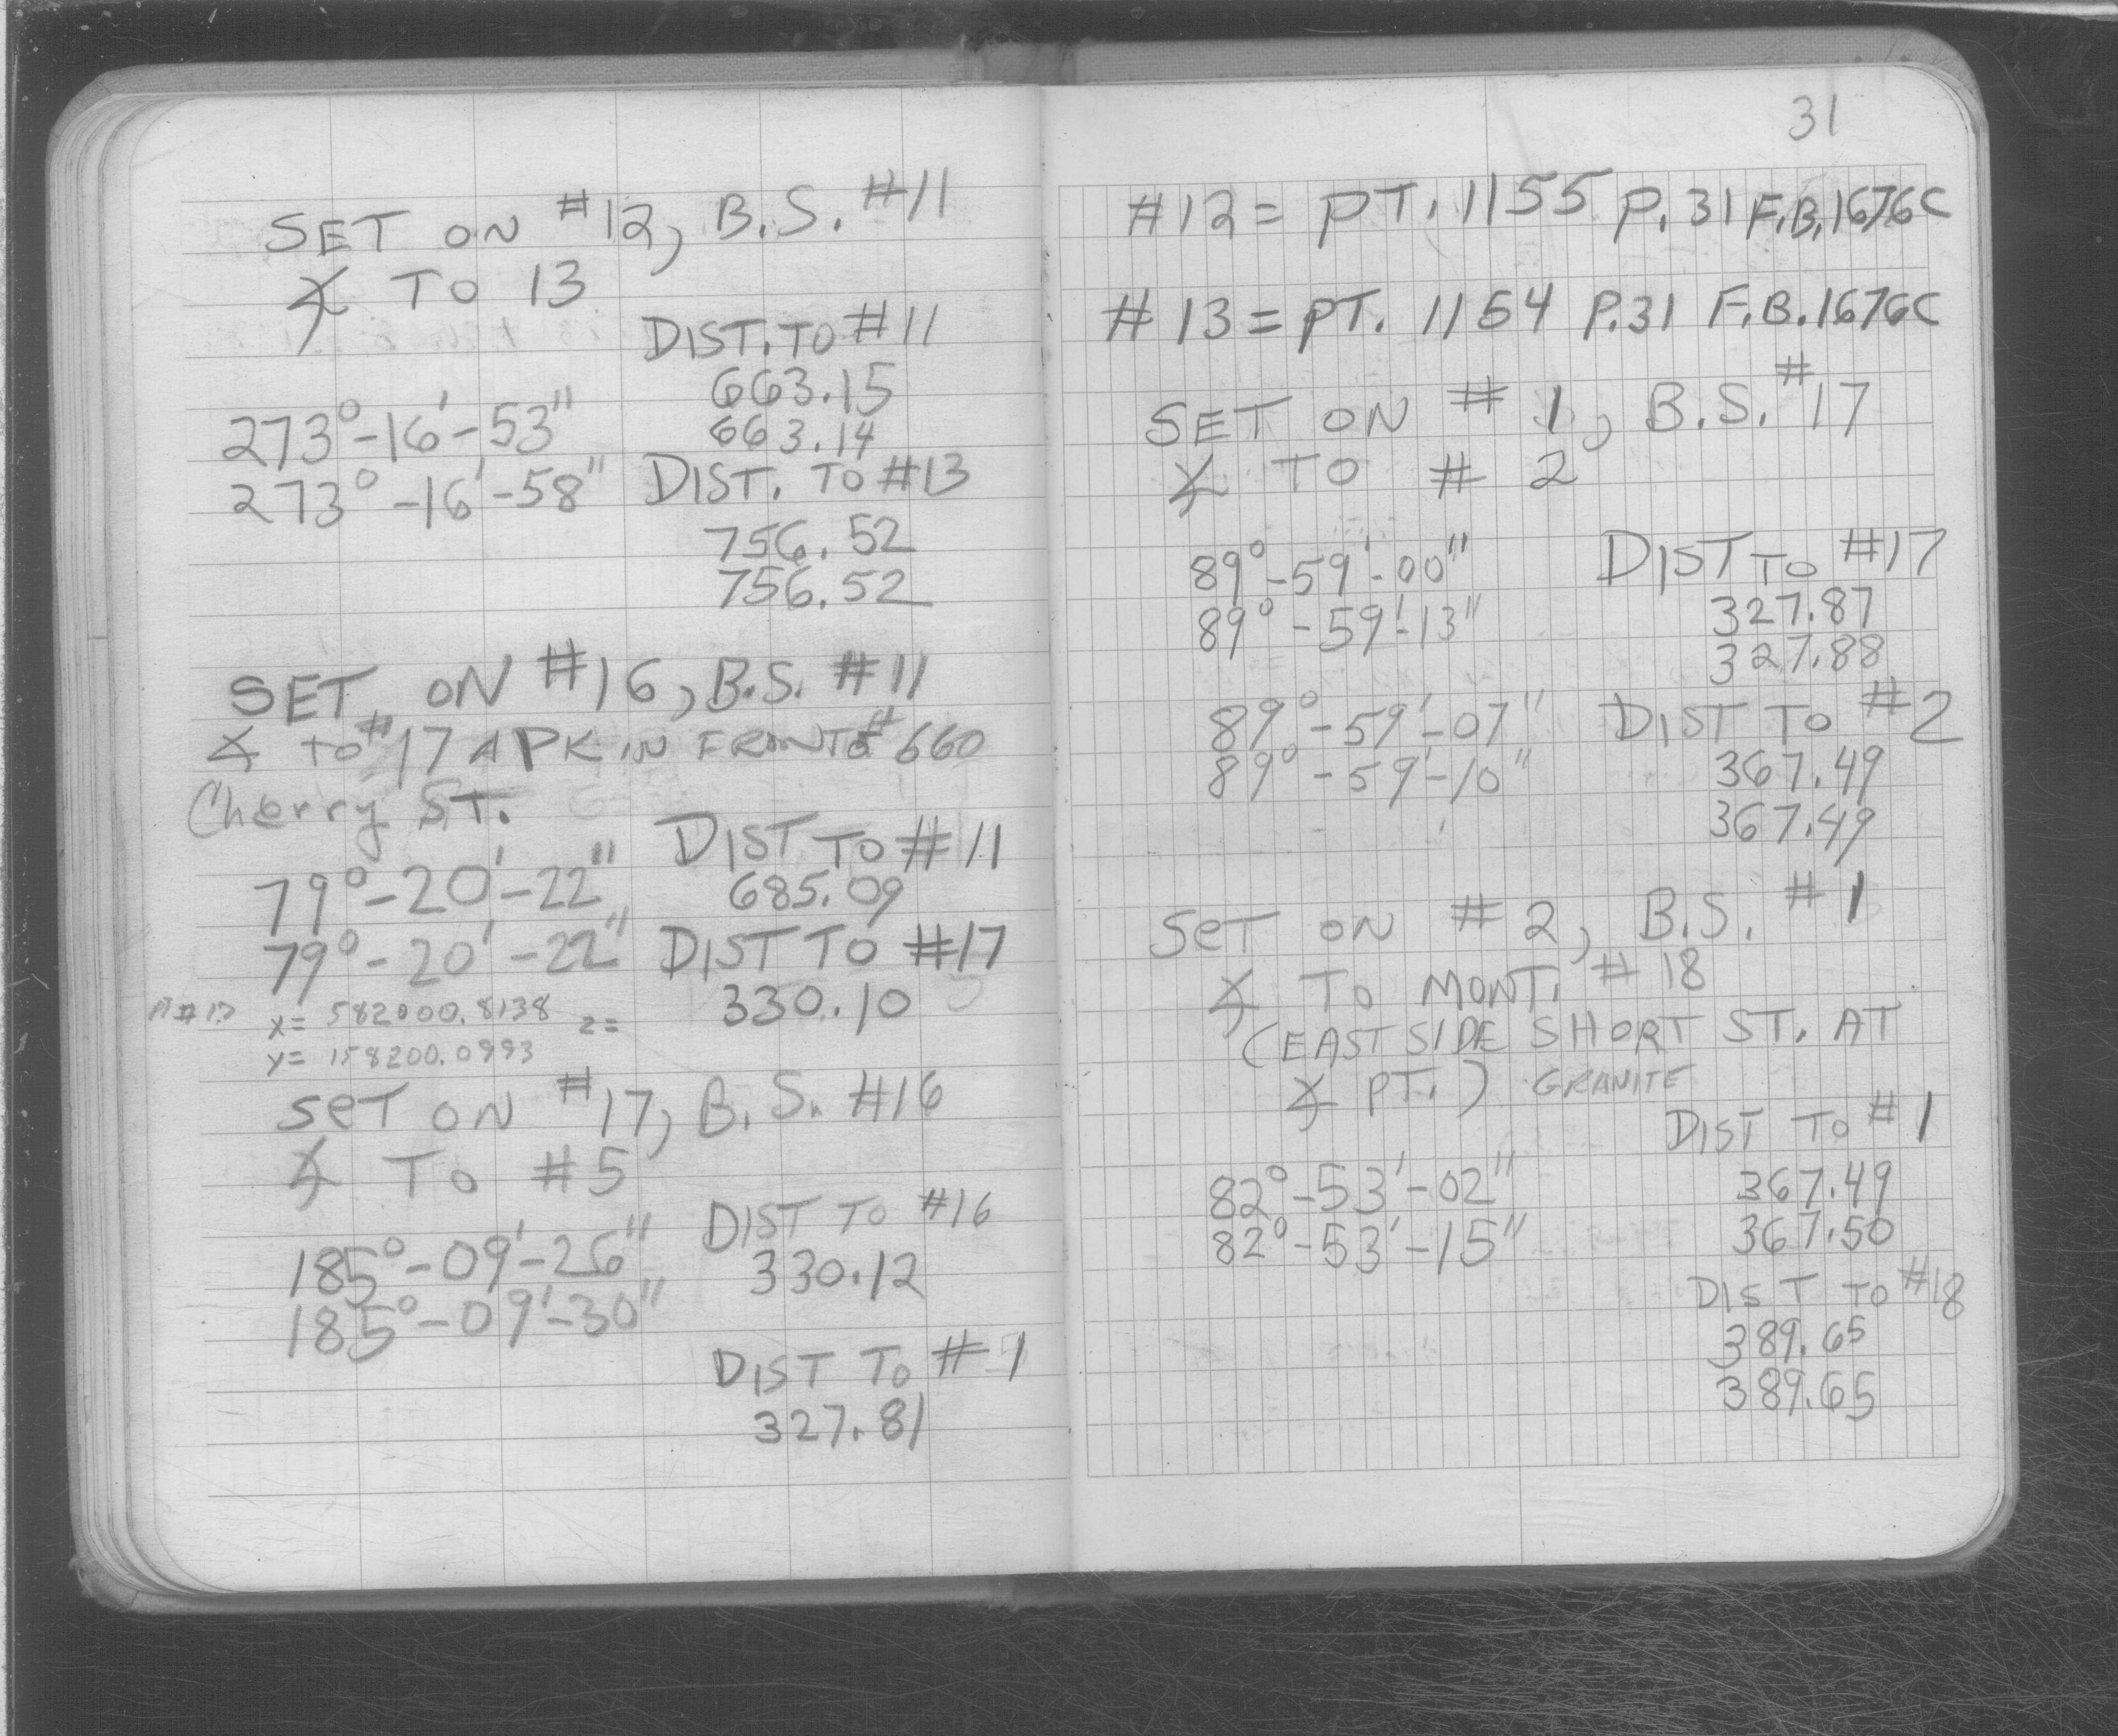 SET ON #12, B.S. #11
∡ TO 13
DIST. TO #11
663.15
273°-16'-53"
663.14
273°-16'-58" DIST. TO #13
756.52
756.52
SET ON #16, B.S. #11
∡ TO #17 A PK IN FRONT OF #660
Cherry ST.
79°-20'-22" DIST TO #11
685.09
79°-20'-22" DIST TO #17
330.10
x= 582000.8138 z=
y= 158200.0993
SET ON #17, B.S. #16
∡ TO #5
185°-09'-26" DIST TO #16
330.12
185°-09'-30"
DIST TO #1
327.81
31
#12 = PT. 1155 P. 31 F.B. 1676C
#13 = PT. 1154 P.31 F.B. 1676C
SET ON #1, B.S. #17
∡ TO #2
89°-59'-00" DIST TO #17
89°-59'-13" 327.87
327.88
89°-59'-07" DIST TO #2
89°-59'-10" 367.49
367.49
SET ON #2, B.S. #1
∡ TO MONT. #18
(EAST SIDE SHORT ST. AT
∡ PT.) GRANITE
DIST TO #1
82°-53'-02" 367.49
82°-53'-15" 367.50
DIST TO #18
389.65
389.65